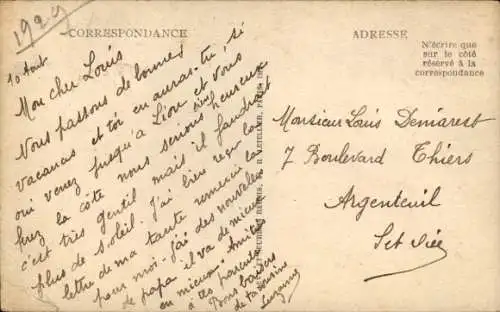 1929
CORRESPONDANCE
10 Août
Mon cher Louis
Nous passons de bonnes
vacances et toi en auras-tu, si
oui venez jusqu'à Lion et vous
la côte nous serions heureux
c'est très gentil mais il faudrait
plus de soleil. J'ai bien reçu la
lettre de ma tante remercie la
pour moi. j'ai des nouvelles
de papa il va de mieux
en mieux. Amitiés
à tes parents
Bons baisers
de ta cousine
Suzanne
ADRESSE
N'écrire que
sur le côté
réservé à la
correspondance
Monsieur Louis Demarest
7 Boulevard Thiers
Argenteuil
Set Oise